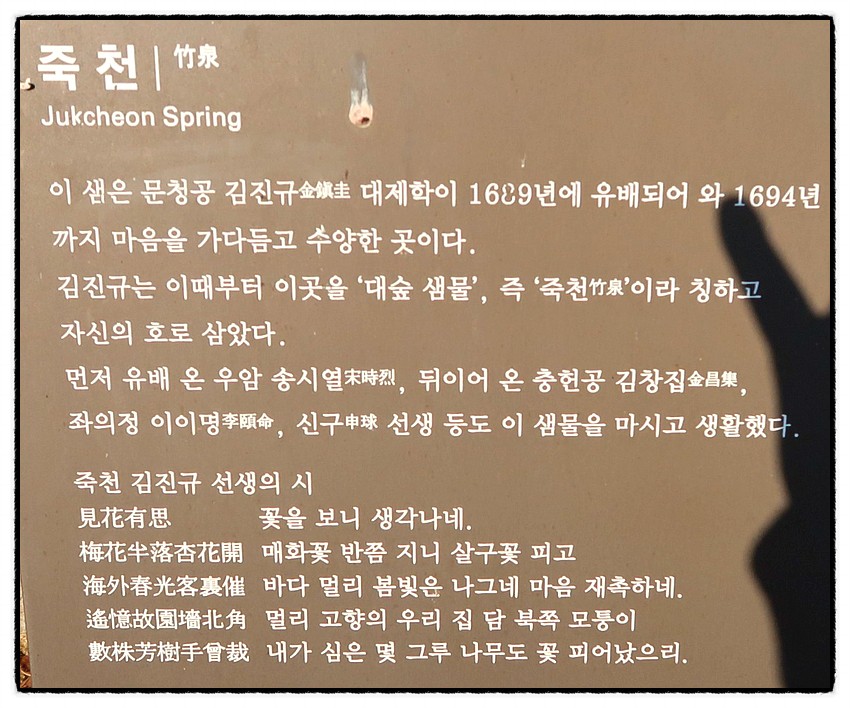 죽천 | 竹泉
Jukcheon Spring
이 샘은 문청공 김진규金鎭圭 대제학이 1689년에 유배되어 와 1694년
까지 마음을 가다듬고 수양한 곳이다.
김진규는 이때부터 이곳을 ‘대숲 샘물’, 즉 ‘죽천竹泉’이라 칭하고
자신의 호로 삼았다.
먼저 유배 온 우암 송시열宋時烈, 뒤이어 온 충헌공 김창집金昌集,
좌의정 이이명李頤命, 신구申球 선생 등도 이 샘물을 마시고 생활했다.
죽천 김진규 선생의 시
見花有思 꽃을 보니 생각나네.
梅花半落杏花開 매화꽃 반쯤 지니 살구꽃 피고
海外春光客裏催 바다 멀리 봄빛은 나그네 마음 재촉하네.
遙憶故園墻北角 멀리 고향의 우리 집 담 북쪽 모퉁이
數株芳樹手曾栽 내가 심은 몇 그루 나무도 꽃 피어났으리.